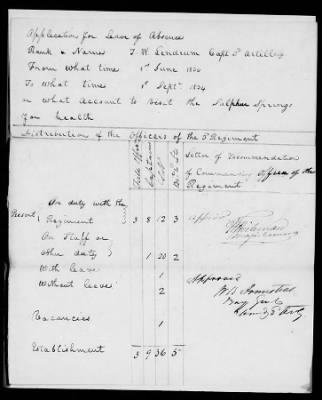 Application for Leave of Absence
Rank & Name T. W. Lendrum Capt 3d Artillery
From what time 1st June 1834
To what time 1st Septr. 1834
on what Account to visit the Sulphur Springs
for health
Distribution of the Officers of the 3d Regiment
Field Officers Captains
Letter of Recommendation
of Commanding Officer of the
Regiment
On duty with the
Present Regiment 3 8 12 3
On Staff or
other duty 1 20 2
With leave 1
Without leave 2
Vacancies 1
Establishment 3 9 36 5
Approved
Approved
W K Armistead